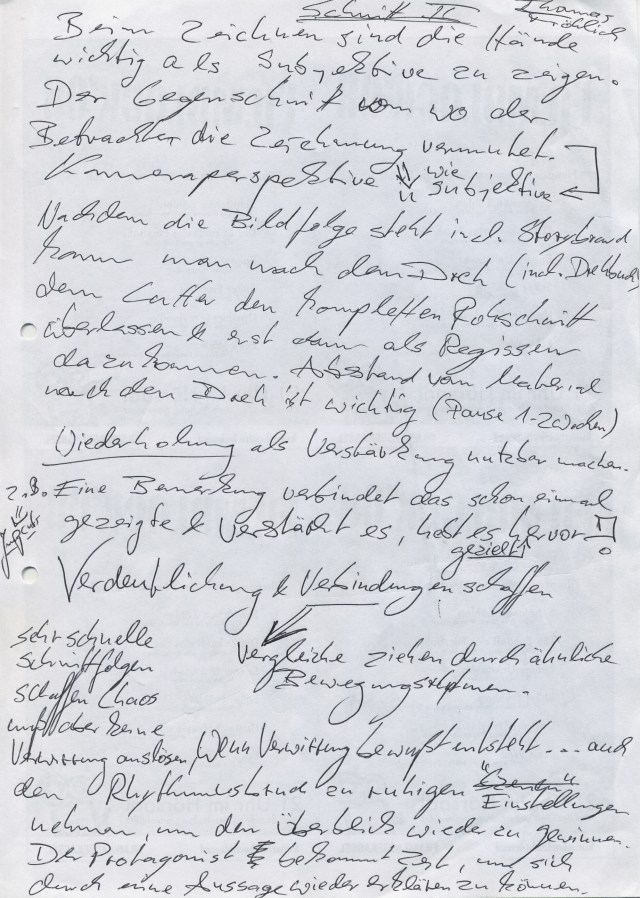 Schnitt II
Thomas Fröhlich
Beim Zeichnen sind die Hände
wichtig als Subjektive zu zeigen.
Der Gegenschnitt von wo der
Betrachter die Zeichnung vermutet.
Kameraperspektive wie Subjektive
Nachdem die Bildfolge steht incl. Storyboard
kann man nach dem Dreh (incl. Drehbuch)
dem Cutter den kompletten Rohschnitt
überlassen & erst dann als Regisseur
dazukommen. Abstand vom Material
nach den Dreh ist wichtig (Pause 1-2 Wochen)
Wiederholung als Verstärkung nutzbar machen.
z.B. Eine Bemerkung verbindet das schon einmal
gezeigte & verstärkt es, hebt es hervor!
gezielt
Verdeutlichung & Verbindungen schaffen
Vergleiche ziehen durch ähnliche
Bewegungsrhythmen.
sehr schnelle
Schnittfolgen
schaffen Chaos
muß aber keine
Verwirrung auslösen, Wenn Verwirrung bewußt entsteht... auch
den Rhythmusbruch zu ruhigen "Szenen"
Einstellungen
nehmen, um den Überblick wieder zu gewinnen.
Der Protagonist bekommt Zeit, um sich
durch eine Aussage wieder erklären zu können.